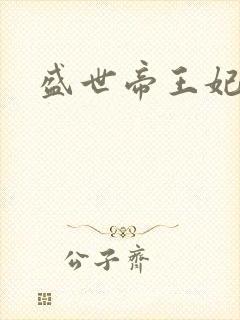 盛世帝王妃
公子齐